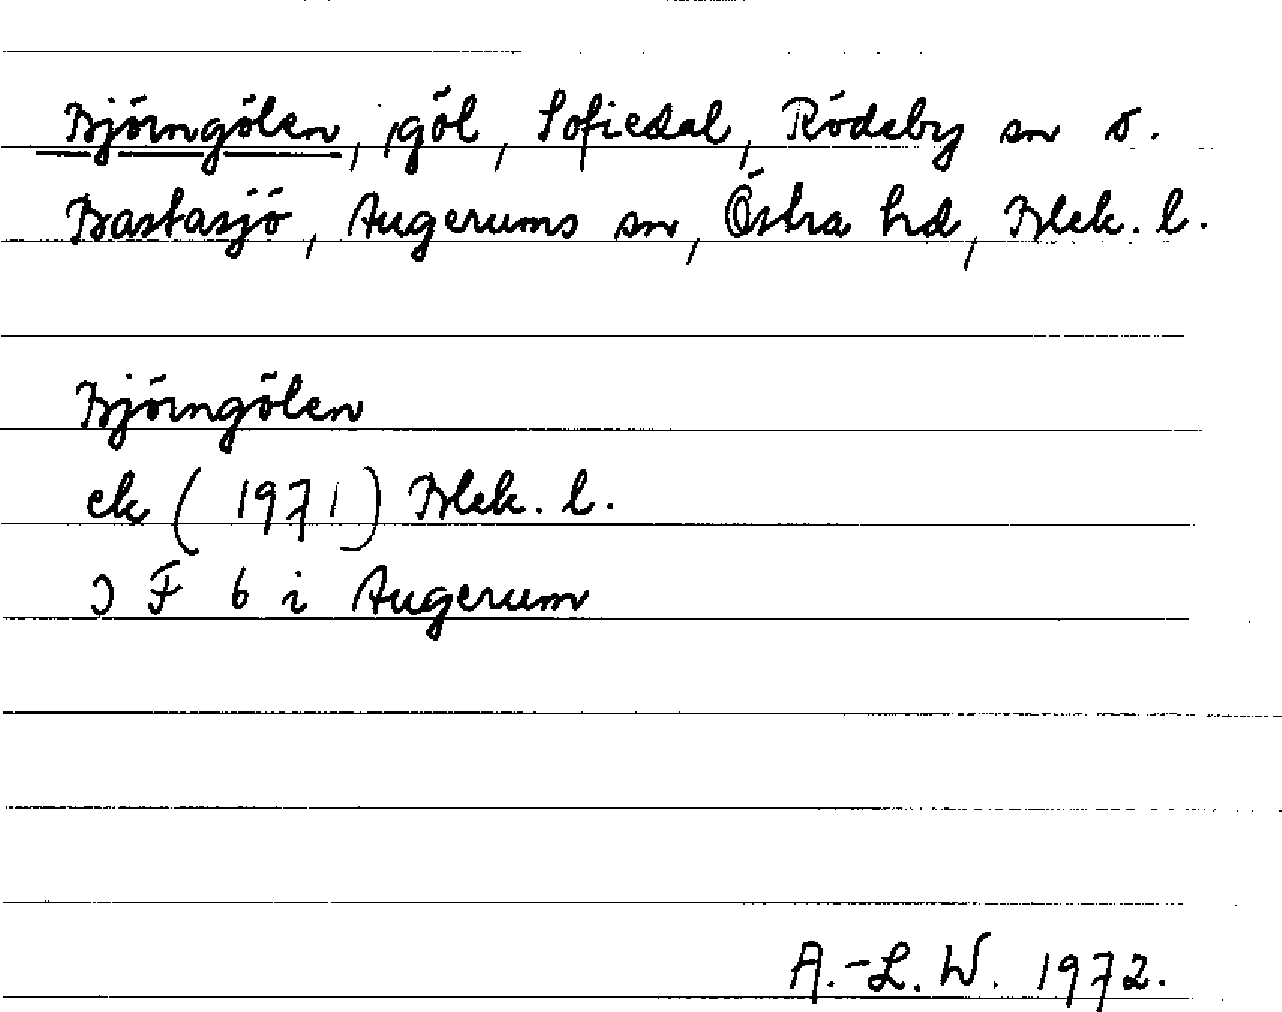 Björngölen, göl, Sofiedal, Rödeby sn o.
Bastasjö, Augerums sn, Östra hd, Blek. l.
Björngölen
ek (1971) Blek. l.
3 F 6 i Augerum
A.-L. W. 1972.